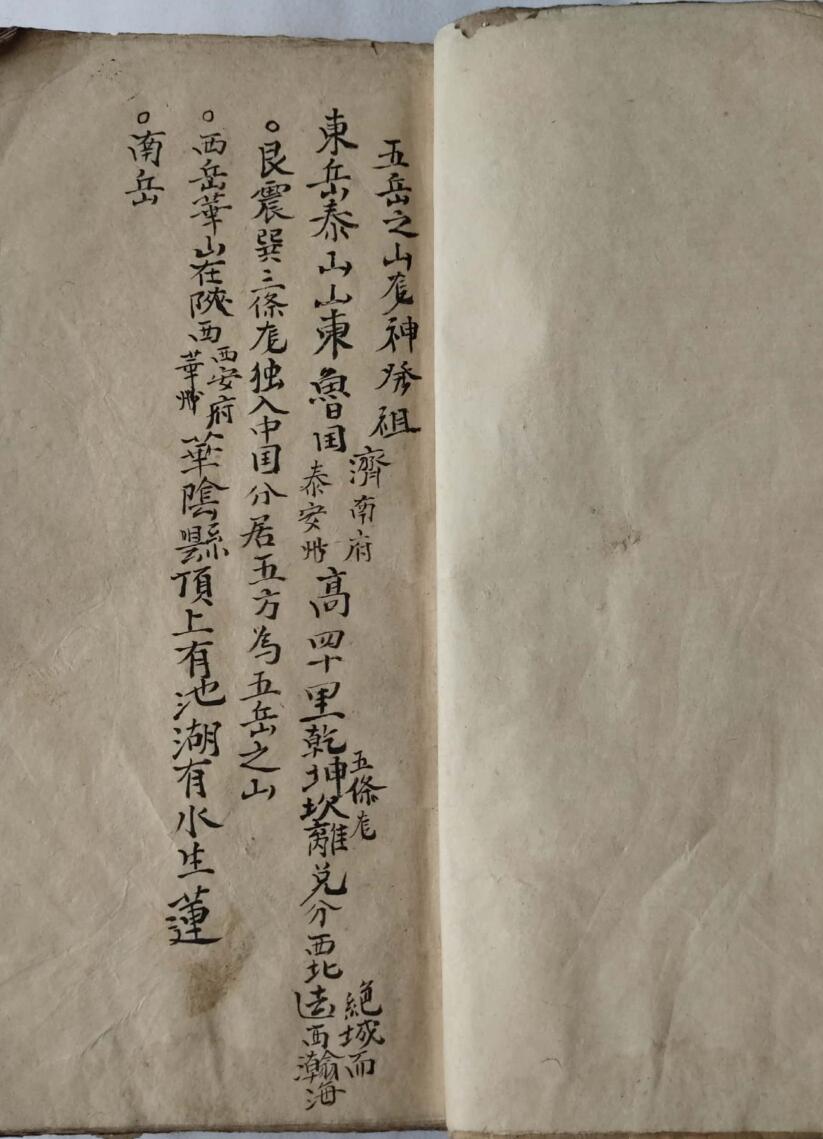 五岳之山龙神發祖
東岳泰山山東魯国濟南府泰安州高四十里乾坤坎離兑五條龙分西北絶域而去西瀚海
○艮震巽三條龙独入中国分居五方為五岳之山
○西岳華山在陝西西安府華州華陰縣頂上有池湖有水生蓮
○南岳